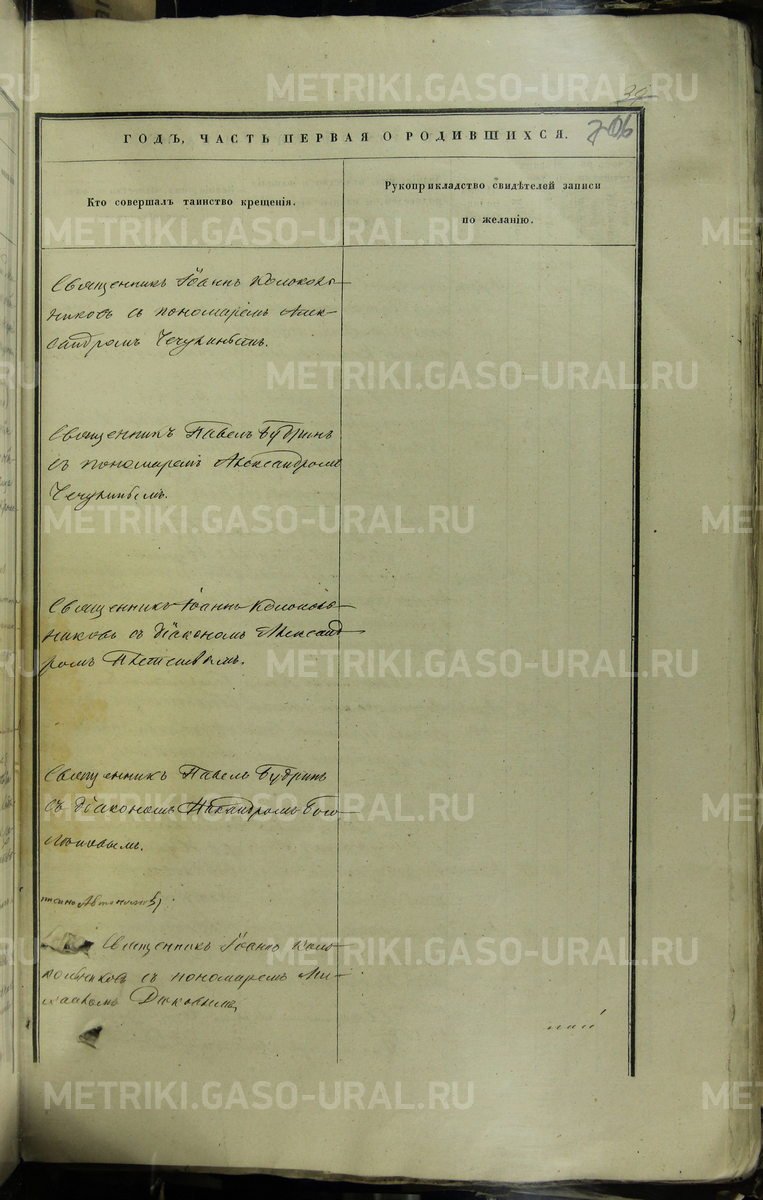 ГОДЪ, ЧАСТЬ ПЕРВАЯ О РОДИВШИХСЯ.
206
Кто совершалъ таинство крещенія.
Рукоприкладство свидѣтелей записи
по желанію.
Священникъ Іоаннъ Колоколь-
никовъ съ пономаремъ Алек-
сандромъ Чечулинымъ.
Священникъ Павелъ Будринъ
съ пономаремъ Александромъ
Чечулинымъ.
Священникъ Іоаннъ Колоколь-
никовъ съ діакономъ Александ-
ромъ
Священникъ Павелъ Будринъ
съ діакономъ
Священникъ Іоаннъ Коло-
кольниковъ съ пономаремъ Ми-
хаиломъ
METRIKI.GASO-URAL.RU